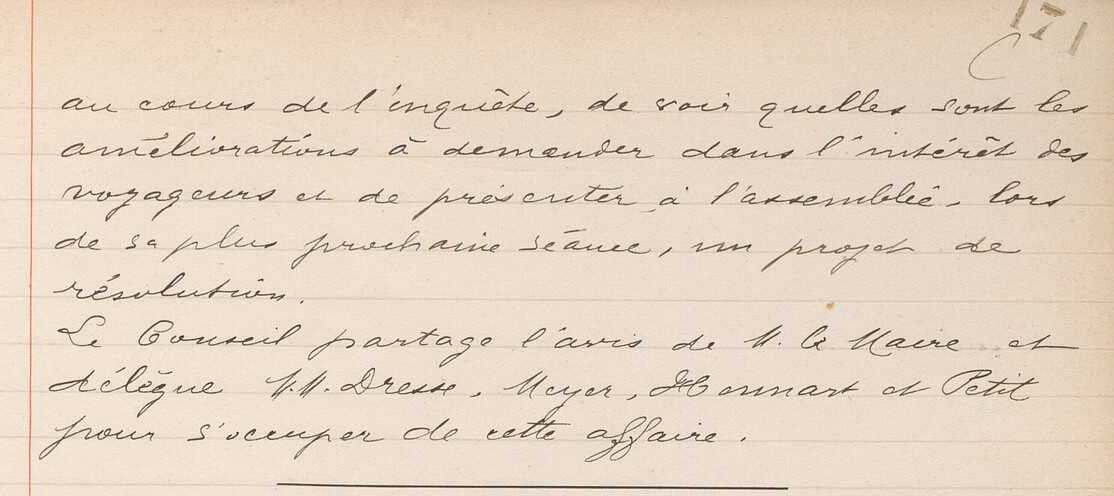 171
au cours de l'enquête, de voir quelles sont les
améliorations à demander dans l'intérêt des
voyageurs et de présenter à l'assemblée, lors
de sa plus prochaine séance, un projet de
résolution.
Le Conseil partage l'avis de M. le Maire et
délègue M.M. Dresse, Meyer, Hennart et Petit
pour s'occuper de cette affaire.